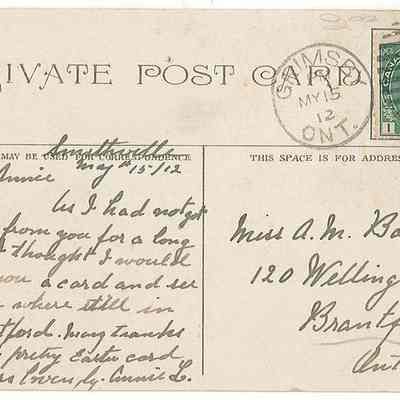 IVATE POST CARD
GRIMSB
MY 15
12
ONT.
1
MAY BE USED FOR CORRESPONDENCE
THIS SPACE IS FOR ADDRES
Smithville
May 15/12
Annie
As I had not got
from you for a long
thought I would
you a card and see
where still in
tford. Many thanks
pretty Easter card
Lovingly. Annie L.
Miss A. M. Ba
120 Welling
Brantf
Ont